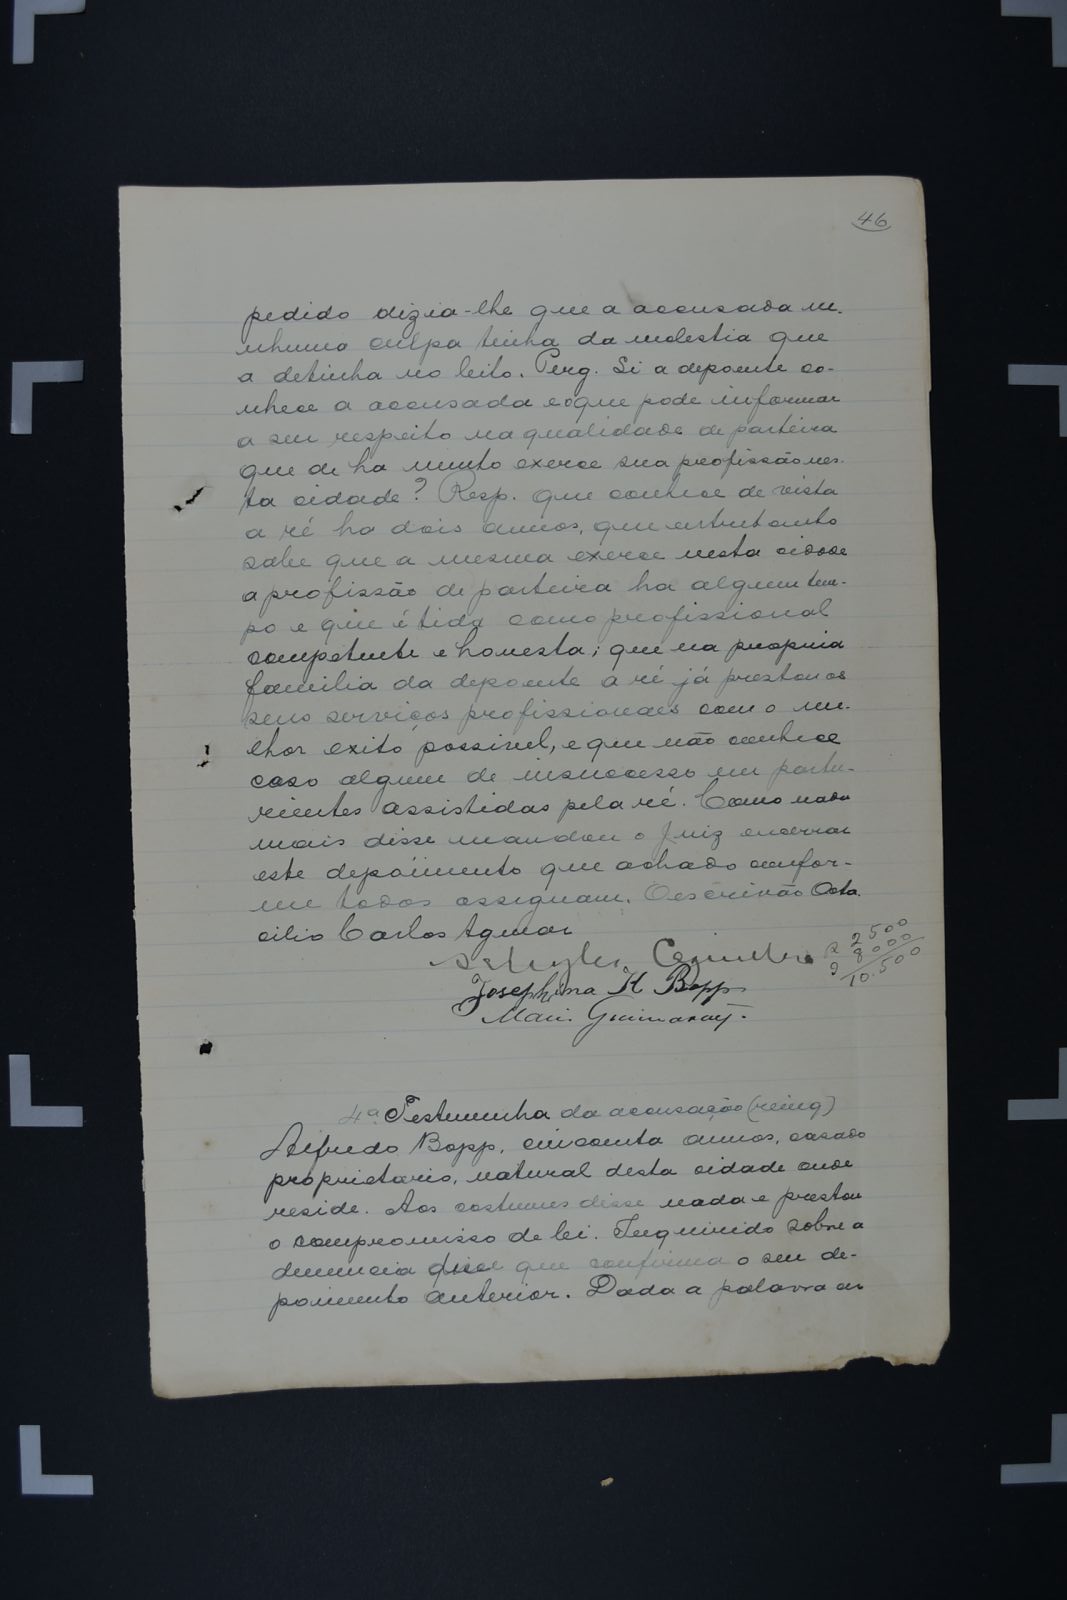 46
pedido dizia-lhe que a accusada ne-
nhuma culpa tinha da molestia que
a detinha no leito. Perg. Si a depoente co-
nhece a accusada e o que pode informar
a seu respeito na qualidade de parteira
que de ha muito exerce sua profissão nes-
ta cidade? Resp. que conhece de vista
a ré ha dois annos, que entretanto
sabe que a mesma exerce nesta cidade
a profissão de parteira ha algum tem-
po e que é tida como profissional
competente e honesta; que na propria
familia da depoente a ré já prestou os
seus serviços profissionaes com o me-
lhor exito possivel, e que não conhece
caso algum de insuccesso em partu-
rientes assistidas pela ré. Como nada
mais disse mandou o Juiz encerrar
este depoimento que achado confor-
me todos assignam. O escrivão Octa
cilio Carlos Aguiar
Josephina H Bopp
Guimarães
2 500
8 000
10.500
4ª Testemunha da accusação (reinq)
Alfredo Bopp, cincoenta annos, casado
proprietario, natural desta cidade onde
reside. Aos costumes disse nada e prestou
o compromisso de lei. Inquirido sobre a
denuncia disse que confirma o seu de-
poimento anterior. Dada a palavra ao